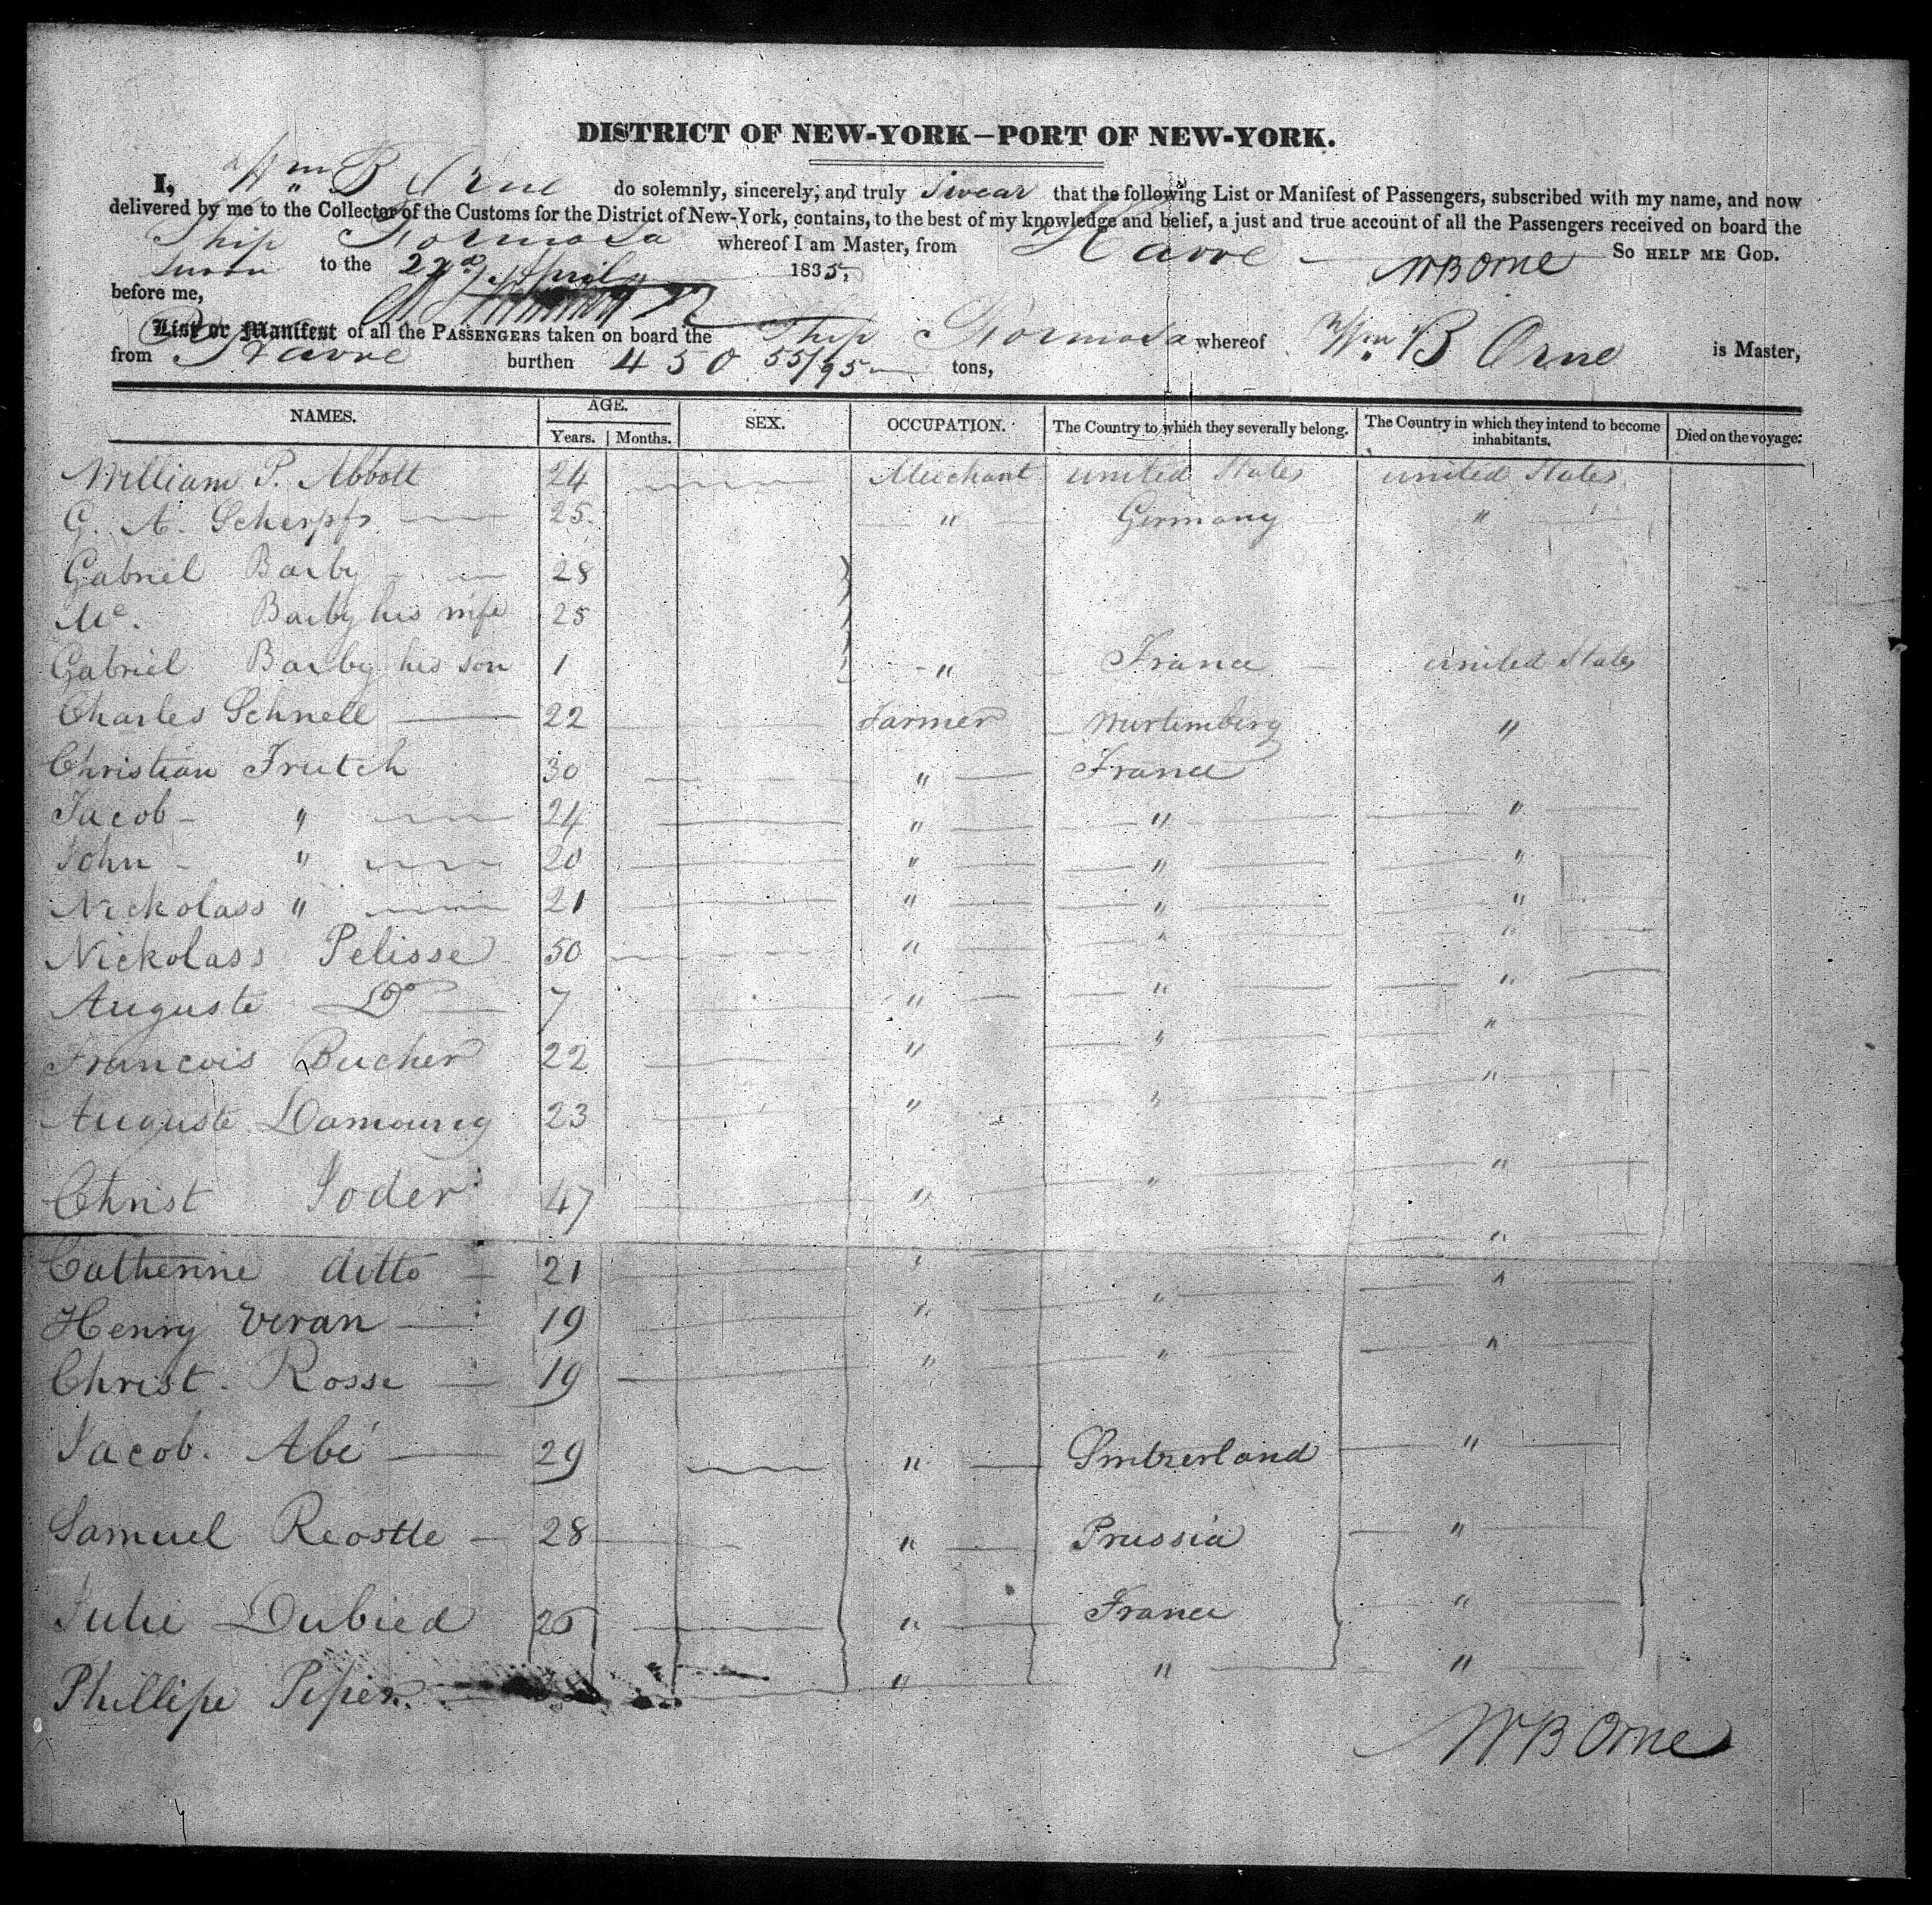 DISTRICT OF NEW-YORK—PORT OF NEW-YORK.
I, Wm B Orne do solemnly, sincerely, and truly swear that the following List or Manifest of Passengers, subscribed with my name, and now
delivered by me to the Collector of the Customs for the District of New-York, contains, to the best of my knowledge and belief, a just and true account of all the Passengers received on board the
Ship Formosa whereof I am Master, from Havre So HELP ME GOD.
Sworn to the 22d April 1835, WB Orne
before me,
List or Manifest of all the PASSENGERS taken on board the Ship Formosa whereof Wm B Orne is Master,
from Havre burthen 450 55/95 tons,
NAMES. AGE. SEX. OCCUPATION. The Country to which they severally belong. The Country in which they intend to become inhabitants. Died on the voyage.
Years. Months.
William P. Abbott 24 Merchant united States united States
G. A. Scherpf 25 " Germany "
Gabriel Barby 28
Me. Barby his wife 25
Gabriel Barby his son 1 " France united States
Charles Schnell 22 Farmer Wurtemberg "
Christian Frutch 30 " France
Jacob " 24 " " "
John " 20 " " "
Nickolass " 21 " " "
Nickolass Pelisse 50 " " "
Auguste Do 7 " " "
Francois Bucher 22 " " "
Auguste 23 " " "
Christ Joder 47 " " "
Catherine ditto 21 " "
Henry Veran 19 " " "
Christ. Rosse 19 " " "
Jacob. Abé 29 " Switzerland "
Samuel Reostle 28 " Prussia "
Julie Dubied 25 " France "
Phillipe Pepin " " "
WB Orne